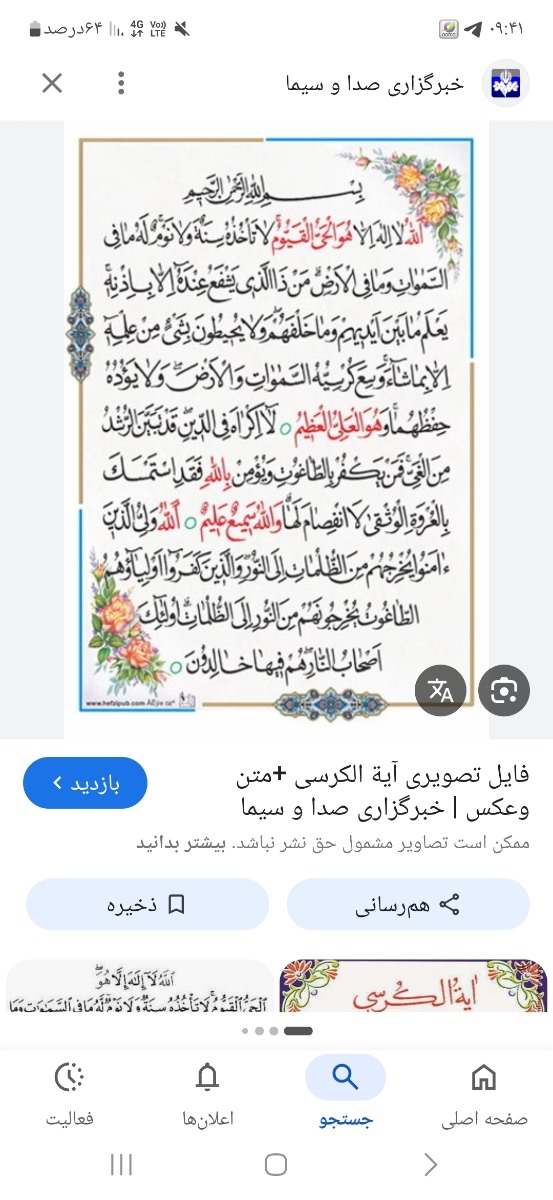 ۰۹:۴۱
4G Vo)) LTE ۶۴درصد
خبرگزاری صدا و سیما
بِسْمِ اللهِ الرَّحْمٰنِ الرَّحِیمِ
اللهُ لا اِلهَ اِلاّ هُوَ الْحَیُّ الْقَیُّومُ لا تَأْخُذُهُ سِنَةٌ وَلا نَوْمٌ لَهُ ما فِی
السَّمٰوٰاتِ وَما فِی الْاَرْضِ مَنْ ذَا الَّذی یَشْفَعُ عِنْدَهُ اِلاّ بِاِذْنِهِ
یَعْلَمُ ما بَیْنَ اَیْدیهِمْ وَما خَلْفَهُمْ وَلا یُحیطُونَ بِشَیْءٍ مِنْ عِلْمِهِ
اِلاّ بِما شاءَ وَسِعَ کُرْسِیُّهُ السَّمٰوٰاتِ وَالْاَرْضَ وَلا یَؤُدُهُ
حِفْظُهُما وَهُوَ الْعَلِیُّ الْعَظیمُ لا اِکْراهَ فِی الدّینِ قَدْ تَبَیَّنَ الرُّشْدُ
مِنَ الْغَیِّ فَمَنْ یَکْفُرْ بِالطّاغُوتِ وَیُؤْمِنْ بِاللهِ فَقَدِ اسْتَمْسَکَ
بِالْعُرْوَةِ الْوُثْقیٰ لَا انْفِصامَ لَها وَاللهُ سَمیعٌ عَلیمٌ اَللهُ وَلِیُّ الَّذینَ
ءامَنُوا یُخْرِجُهُمْ مِنَ الظُّلُماتِ اِلَی النُّورِ وَالَّذینَ کَفَرُوا اَوْلِیاؤُهُمُ
الطّاغُوتُ یُخْرِجُونَهُمْ مِنَ النُّورِ اِلَی الظُّلُماتِ اُولٰئِکَ
اَصْحابُ النّارِ هُمْ فیها خالِدُونَ
www.hefzipub.com
فایل تصویری آیة الکرسی +متن
وعکس | خبرگزاری صدا و سیما
بازدید
ممکن است تصاویر مشمول حق نشر نباشد. بیشتر بدانید
هم‌رسانی
ذخیره
اٰیةُ الکُرسی
اللهُ لَآ إِلَٰهَ إِلَّا هُوَ
الْحَیُّ الْقَیُّومُ لَا تَأْخُذُهُ سِنَةٌ وَلَا نَوْمٌ لَهُ مَا فِی السَّمَٰوَٰتِ وَمَا
صفحه اصلی
جستجو
اعلان‌ها
فعالیت